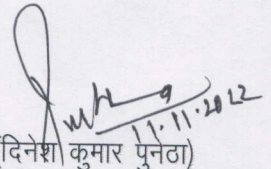 11.11.2022
(दिनेश कुमार पुनेठा)